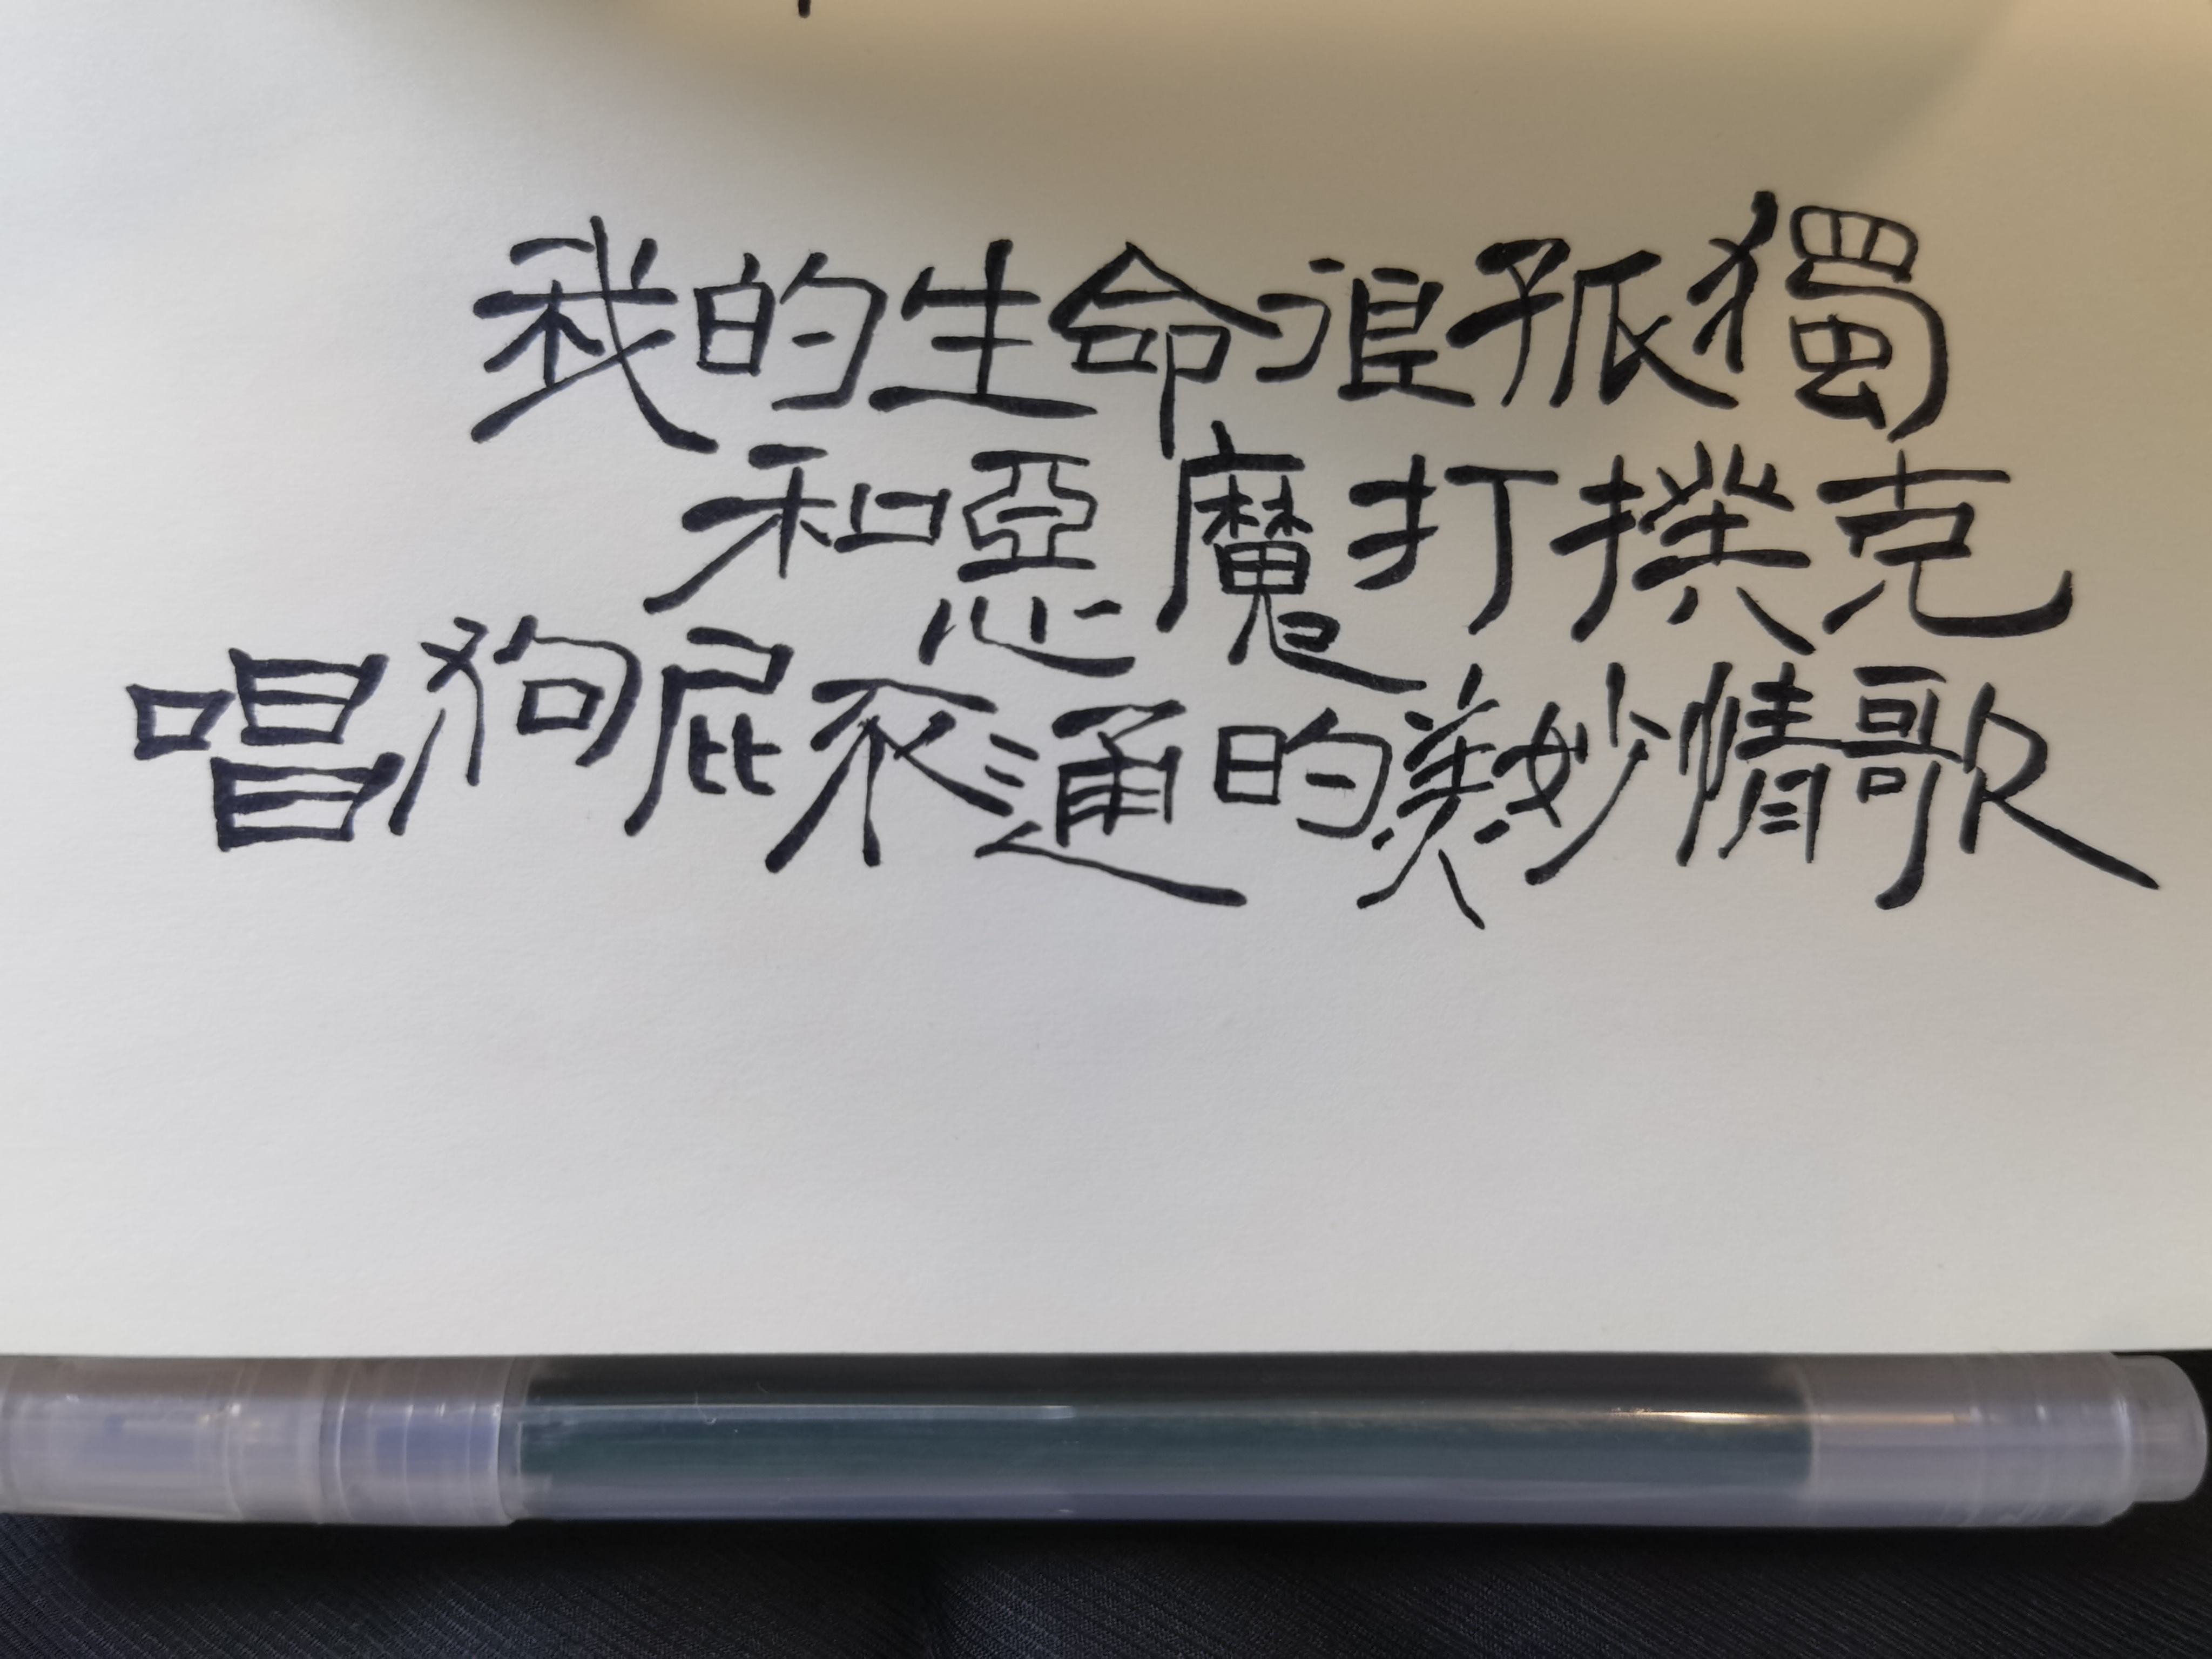 我的生命很孤獨
和惡魔打撲克
唱狗屁不通的美妙情歌